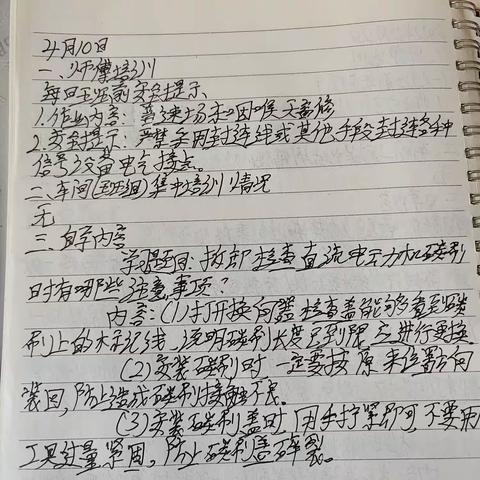 4月10日
一、师傅培训
每日班前安全提示
1.作业内容:普速场和咽喉天窗修
2.安全提示:严禁采用封连线或其他手段封连各种
信号设备电气接点。
二、车间(班组)集中培训情况
无
三、自学内容
学习题目:拆卸检查直流电动机碳刷
时有哪些注意事项?
内容:(1)打开换向器检查盖能够看到碳
刷上的标记线,说明碳刷长度已到限,应进行更换
(2)安装碳刷时一定要按原来位置方向
装回,防止造成碳刷接触不良。
(3)安装碳刷盖时,用手拧紧即可,不要用
工具过量紧固,防止碳刷盖碎裂。